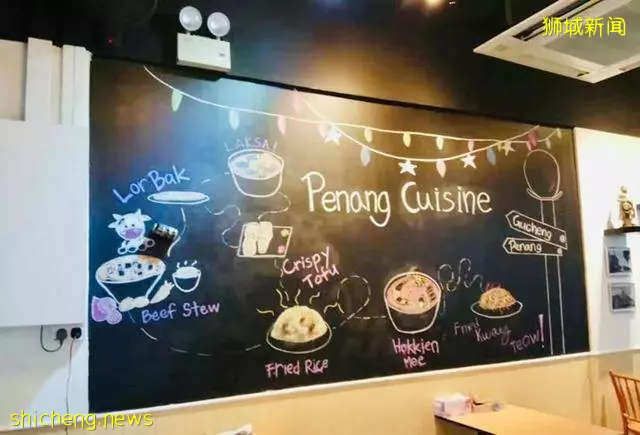 狮城新闻
LAKSA!
Penang Cuisine
Lor Bak
Gucheng
Penang
Crispy
Tofu
Beef Stew
Fried Rice
Hokkien
Mee
Fried
Kway
Teow!
shicheng.news